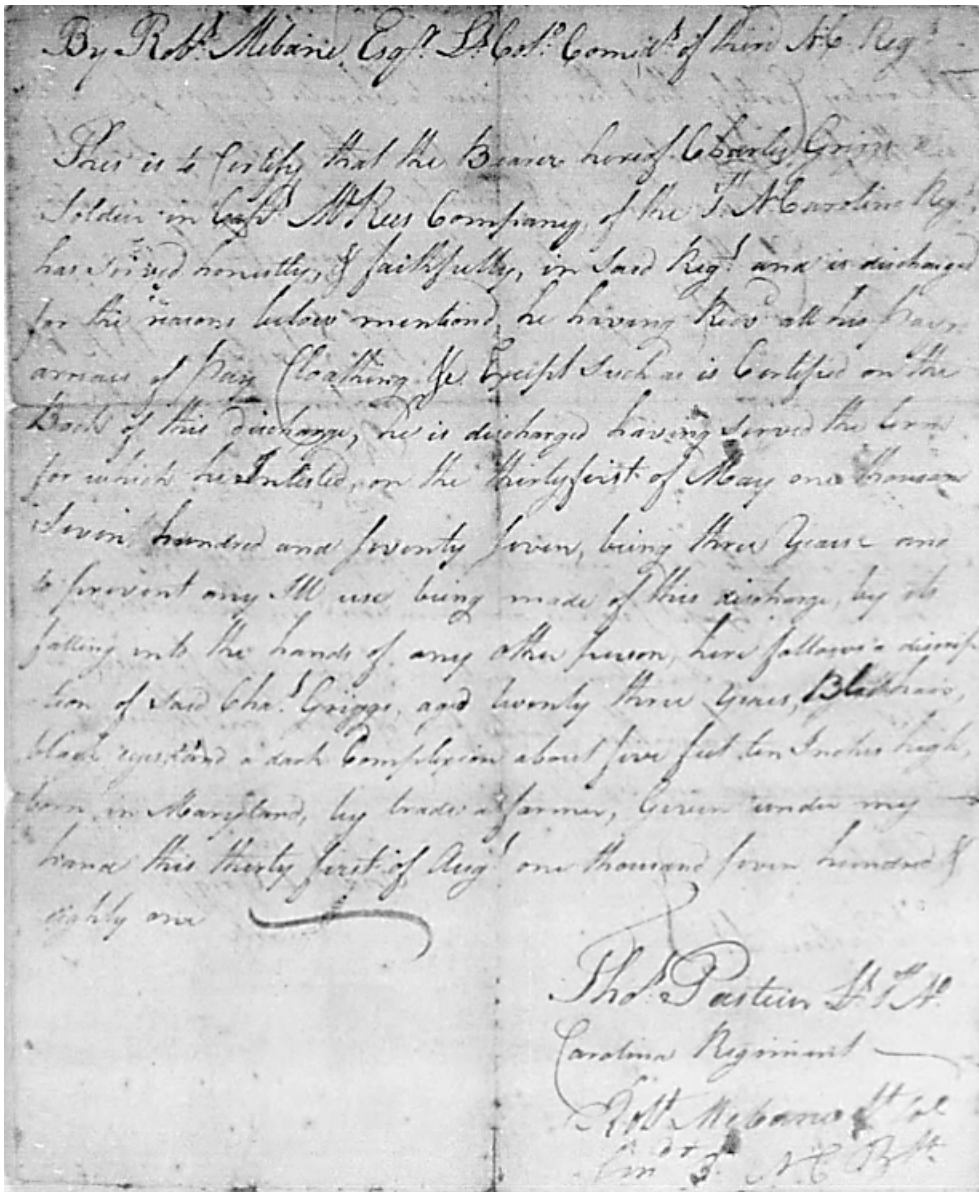 By Robt. Mebane, Esqr. Lt. Colo. Comdt. of third N.C. Regt.
This is to Certify that the Bearer hereof Charles Griggs
Soldier in Capt. McRees Company, of the N Carolina Regt
has served honestly, & faithfully, in said Regt. and is discharged
for the reasons below mentiond, he having Recd all his
arrears of Pay Cloathing &c Except Such as is Certified on the
Back of this discharge, he is discharged having served the term
for which he Inlisted, on the thirty first of May one thousand
Seven hundred and seventy seven, being three Years and
to prevent any Ill use being made of this discharge, by its
falling into the hands of any other person, here follows a discrip
tion of said Chas. Griggs, aged twenty three years, Black hair,
black eyes and a dark Complexion about five feet ten Inches high,
born in Maryland, by trade a farmer, Given under my
hand this thirty first of Augt. one thousand seven hundred &
eighty one
Thos. Pasteur Lt. N.
Carolina Regiment
Robt Mebane Lt Col
N C